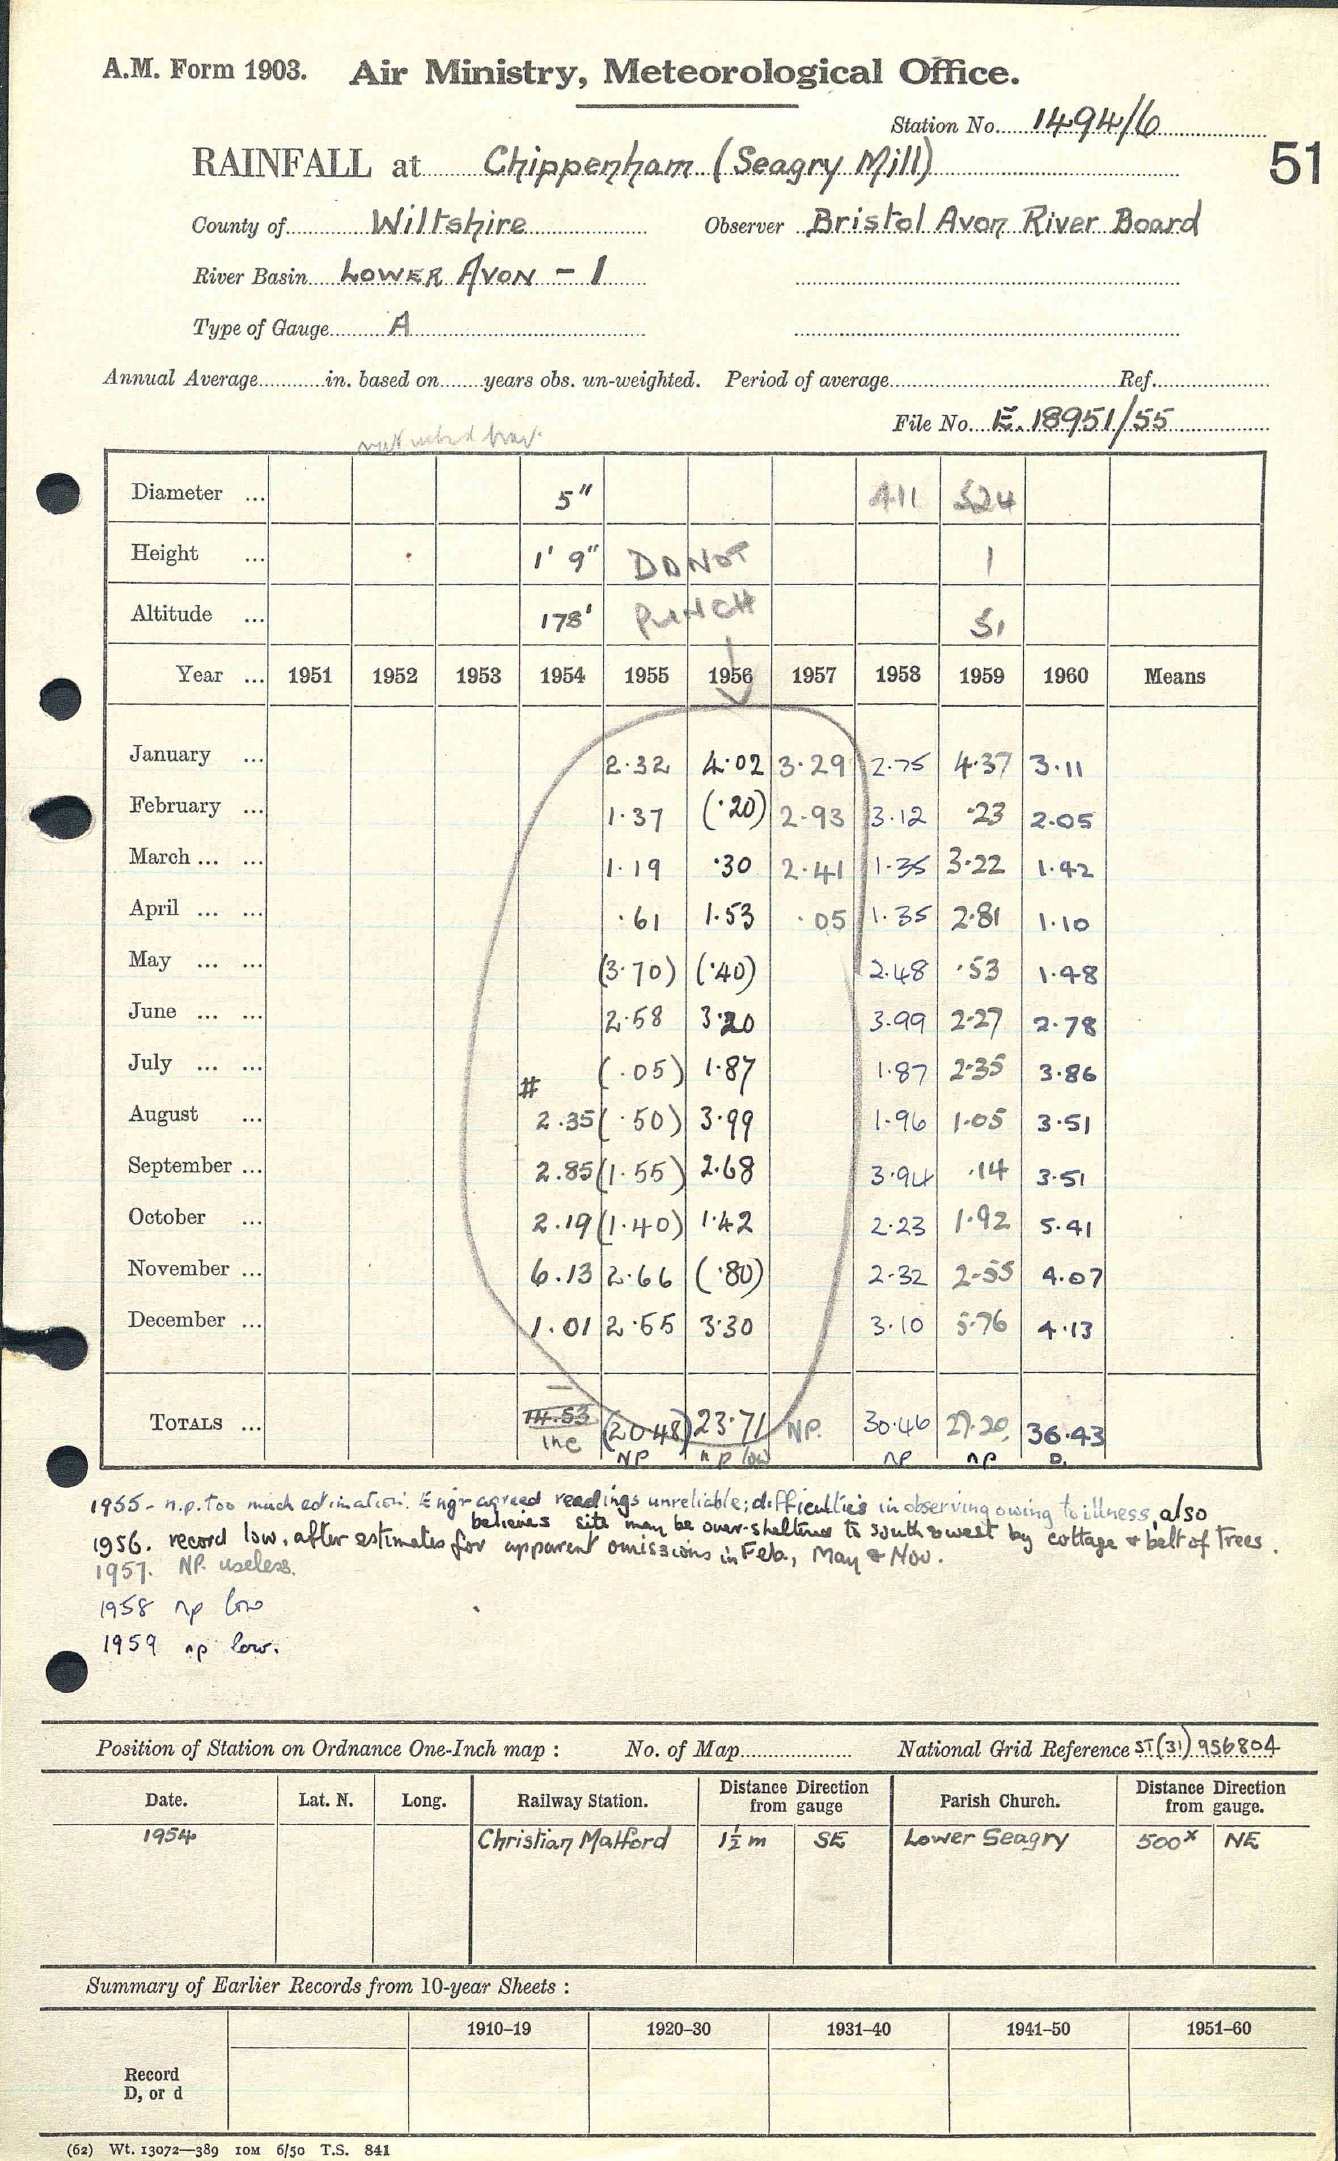 A.M. Form 1903. Air Ministry, Meteorological Office.
Station No. 1494/6
RAINFALL at Chippenham (Seagry Mill) 51
County of Wiltshire Observer Bristol Avon River Board
River Basin LOWER AVON - 1
Type of Gauge A
Annual Average in. based on years obs. un-weighted. Period of average Ref.
File No. E.18951/55
Diameter ... 5" 411 524
Height ... 1' 9" DO NOT 1
Altitude ... 178' PUNCH 51
Year ... 1951 1952 1953 1954 1955 1956 1957 1958 1959 1960 Means
January ... 2.32 4.02 3.29 2.75 4.37 3.11
February ... 1.37 (.20) 2.93 3.12 .23 2.05
March ... ... 1.19 .30 2.41 1.35 3.22 1.92
April ... ... .61 1.53 .05 1.35 2.81 1.10
May ... ... (3.70) (.40) 2.48 .53 1.48
June ... ... 2.58 3.20 3.99 2.27 2.78
July ... ... (.05) 1.87 1.87 2.35 3.86
#
August ... 2.35 (.50) 3.99 1.96 1.05 3.51
September ... 2.85 (1.55) 2.68 3.94 .14 3.51
October ... 2.19 (1.40) 1.42 2.23 1.92 5.41
November ... 6.13 2.66 (.80) 2.32 2.55 4.07
December ... 1.01 2.55 3.30 3.10 5.76 4.13
TOTALS ... 14.53 (20.48) 23.71 NP. 30.46 27.20 36.93
inc NP n p low np np D.
1955 - n.p. too much estimation. Engr agreed readings unreliable; difficulties in observing owing to illness, also
believes site may be over-sheltered to south & west by cottage & belt of trees.
1956. record low, after estimates for apparent omissions in Feb., May & Nov.
1957. NP. useless.
1958 np low
1959 np low.
Position of Station on Ordnance One-Inch map : No. of Map National Grid Reference ST(31) 956804
Date. Lat. N. Long. Railway Station. Distance Direction from gauge Parish Church. Distance Direction from gauge.
1954 Christian Malford 1½ m SE Lower Seagry 500x NE
Summary of Earlier Records from 10-year Sheets :
1910–19 1920–30 1931–40 1941–50 1951–60
Record
D, or d
(62) Wt. 13072—389 10M 6/50 T.S. 841